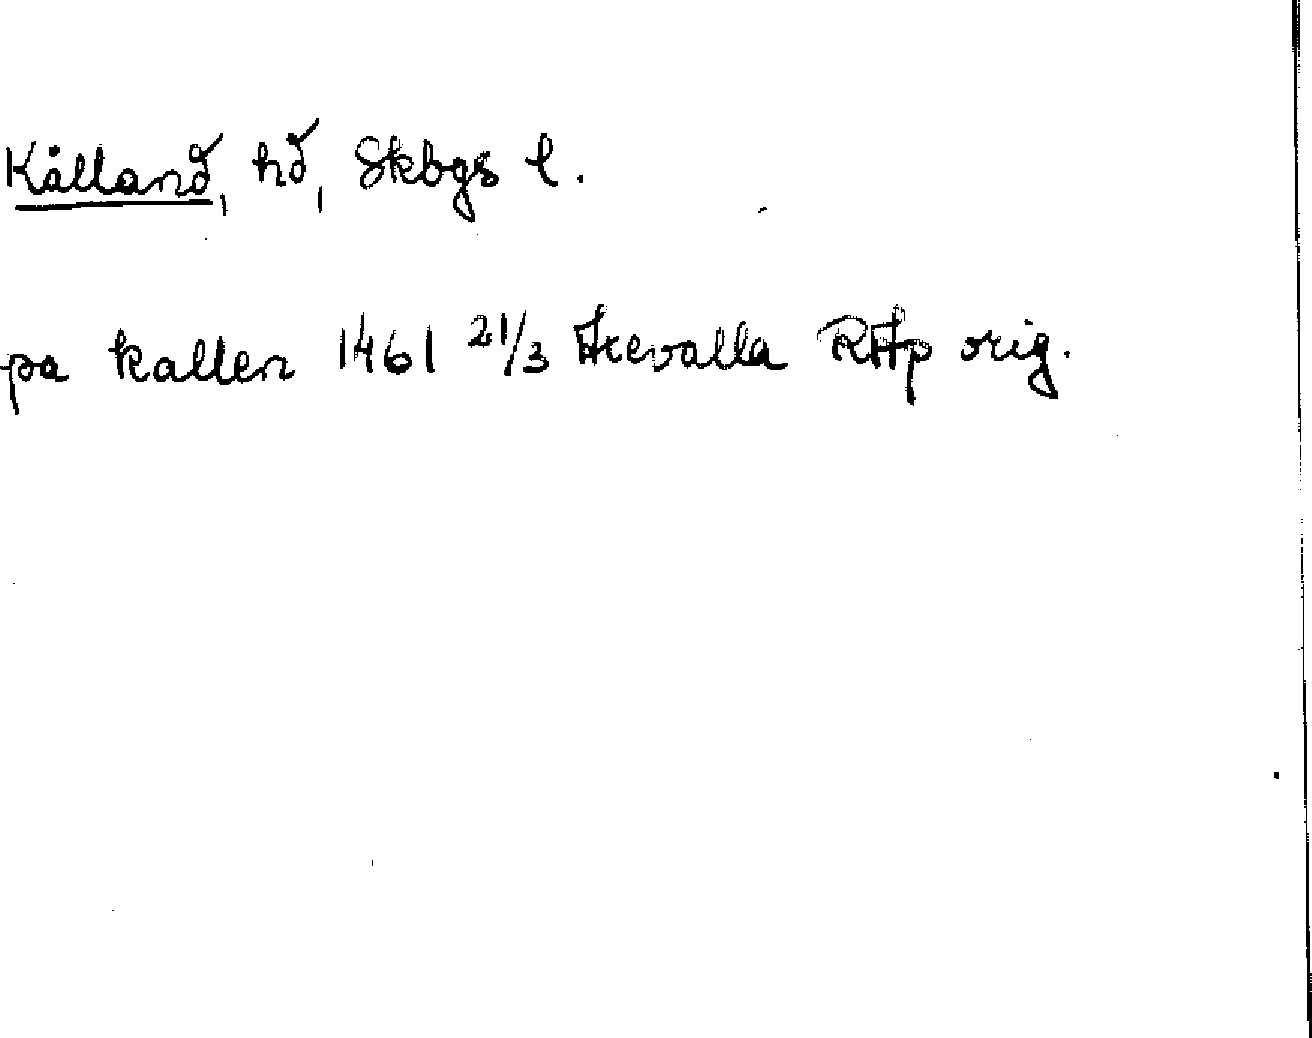 Kålland, hd, Skbgs l.
pa kallen 1461 21/3 Hrevalla RAp orig.